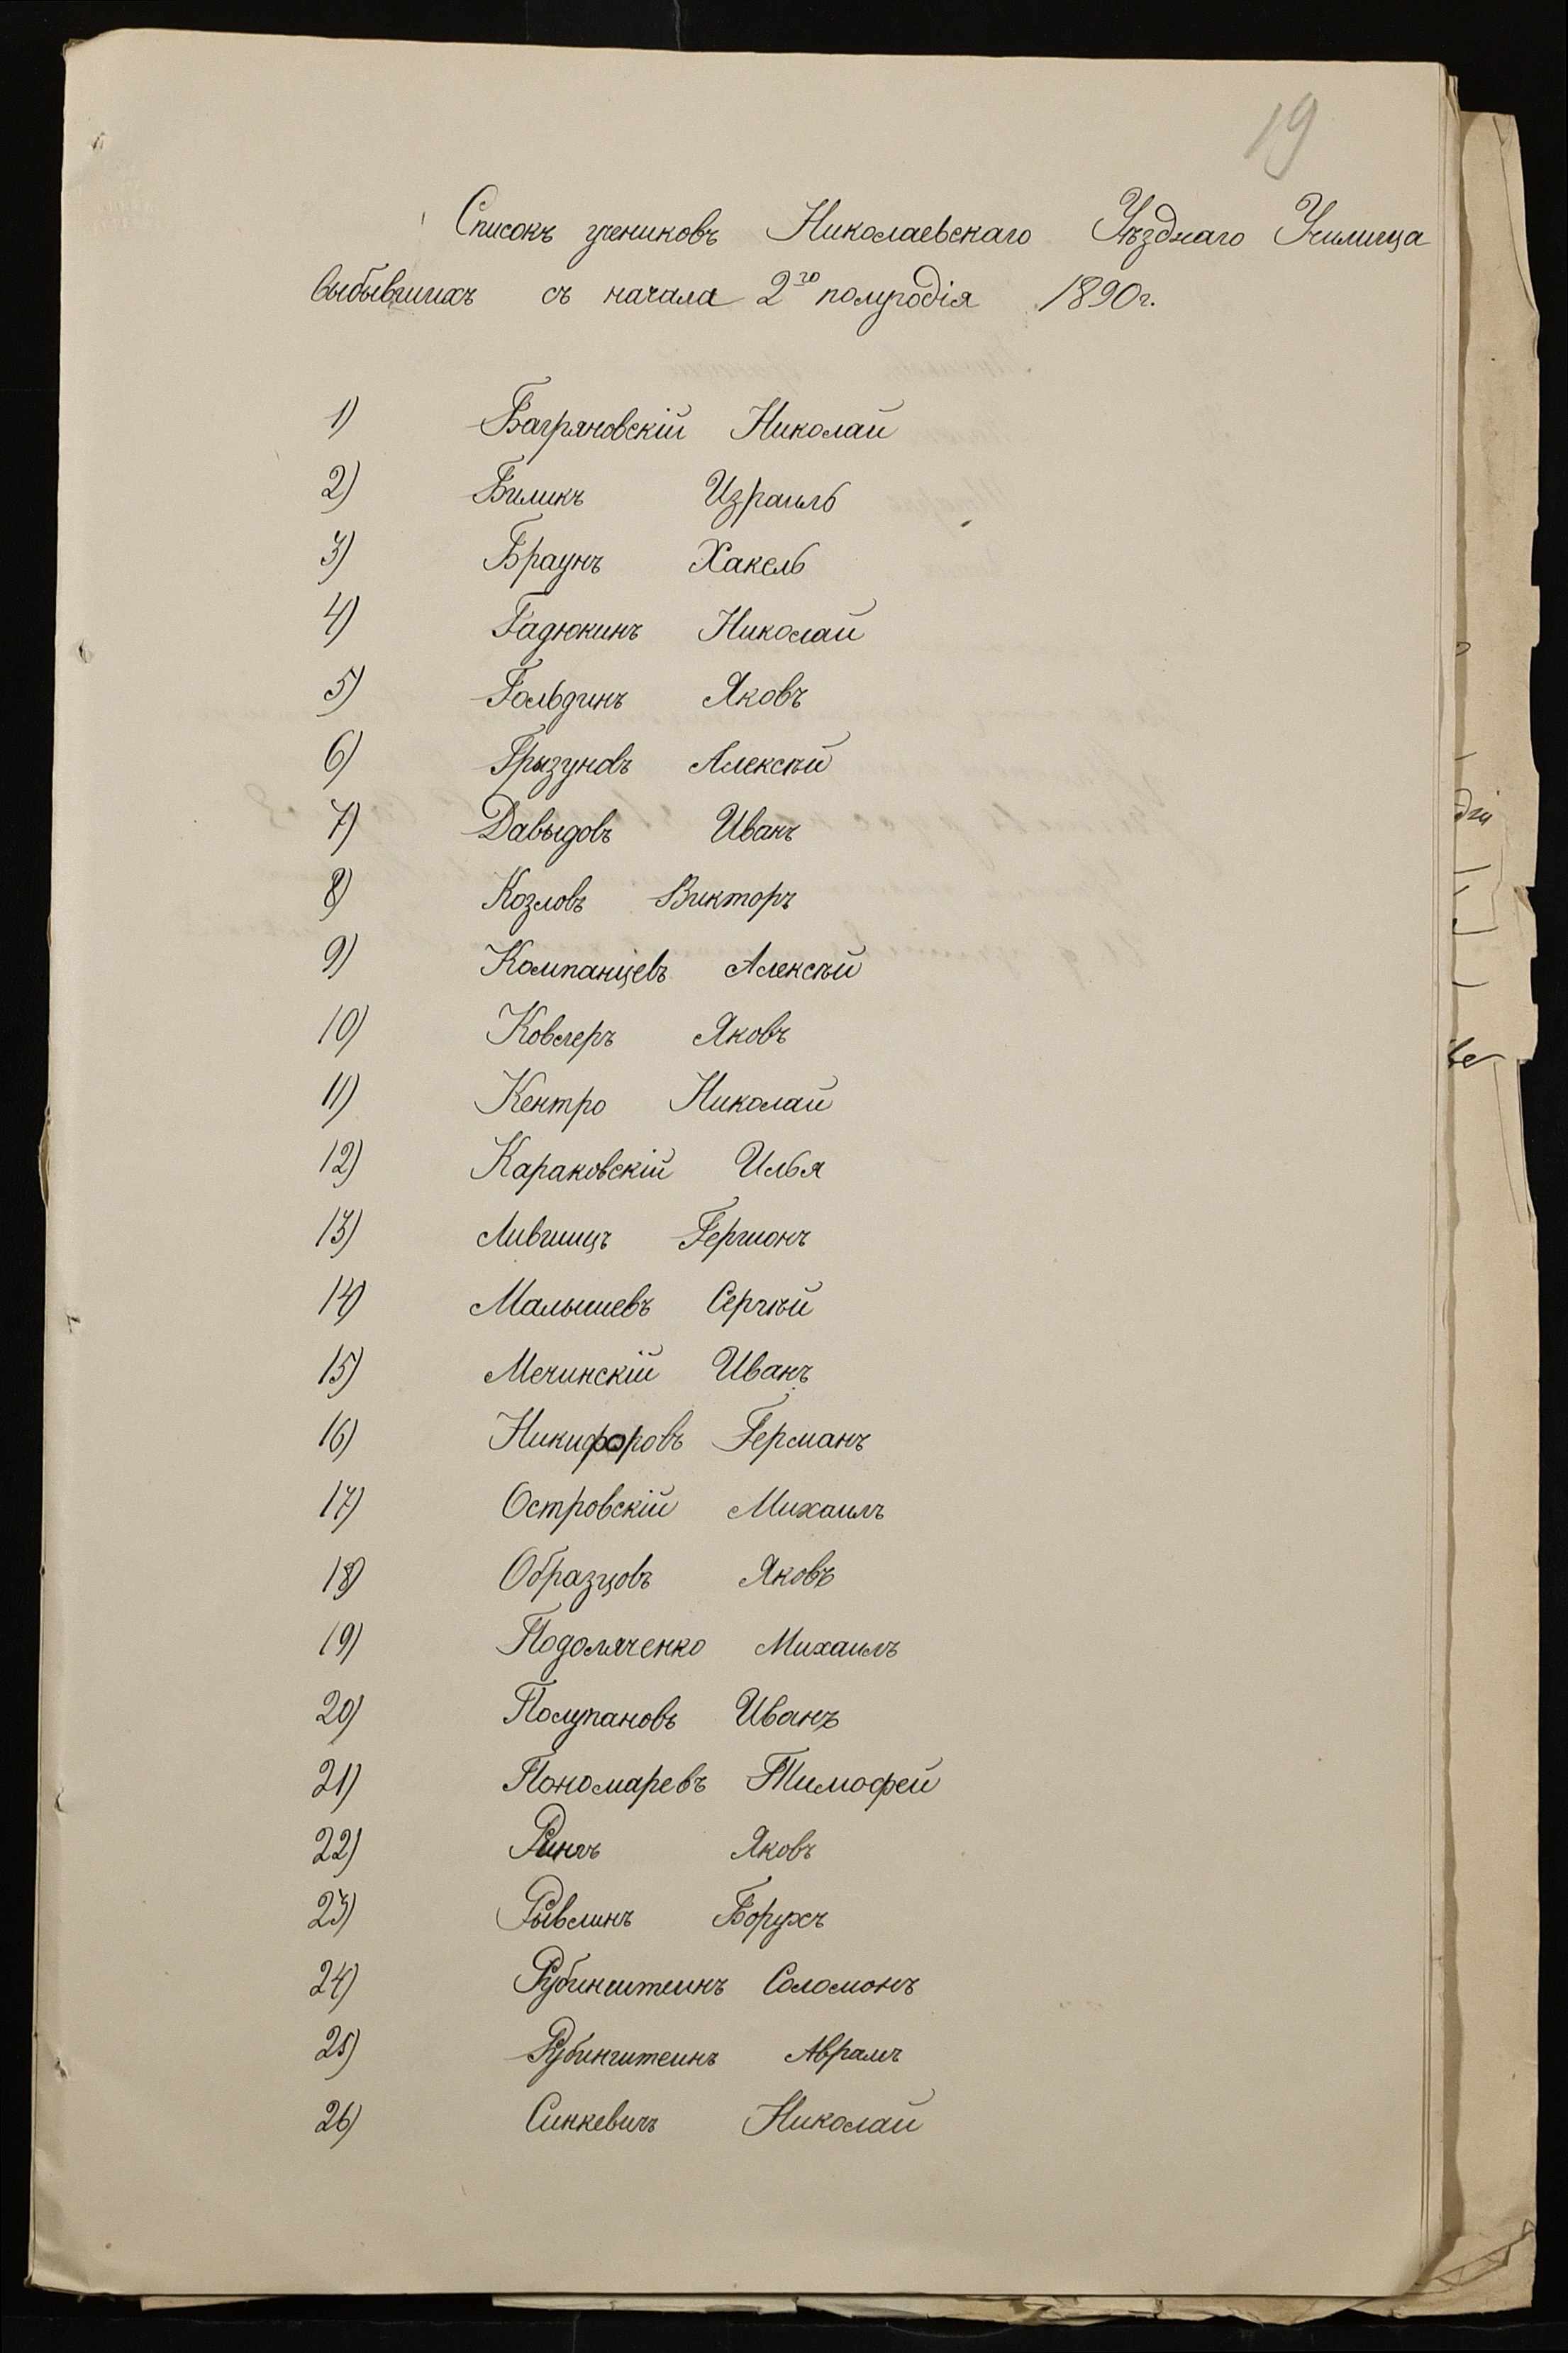 19
Списокъ учениковъ Николаевскаго Уѣзднаго Училища
выбывшихъ съ начала 2го полугодія 1890г.
1) Багряновскій Николай
2) Биликъ Израиль
3) Браунъ Хакель
4) Гадюкинъ Николай
5) Гольдинъ Яковъ
6) Грызуновъ Алексѣй
7) Давыдовъ Иванъ
8) Козловъ Викторъ
9) Компанцевъ Алексѣй
10) Ковлеръ Яковъ
11) Кентро Николай
12) Караковскій Илья
13) Лившицъ Гершонъ
14) Малышевъ Сергѣй
15) Мечинскій Иванъ
16) Никифоровъ Германъ
17) Островскій Михаилъ
18) Образцовъ Яковъ
19) Подоляченко Михаилъ
20) Полупановъ Иванъ
21) Пономаревъ Тимофей
22) Яковъ
23) Рывлинъ Борухъ
24) Рубинштейнъ Соломонъ
25) Рубинштейнъ Абрамъ
26) Синкевичъ Николай